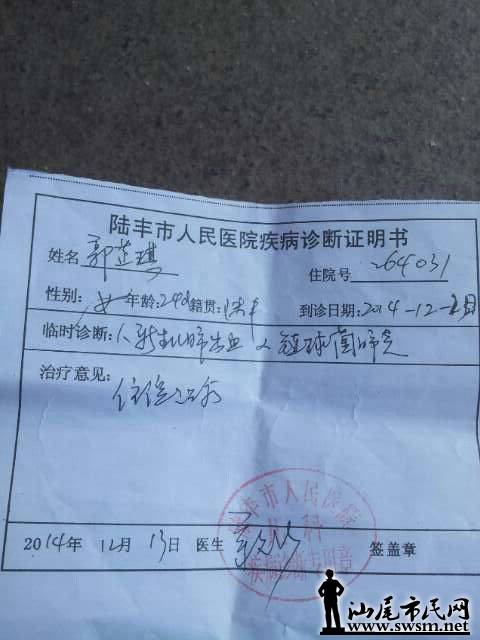 陆丰市人民医院疾病诊断证明书
姓名 郭芷琪 住院号 264031
性别: 女 年龄: 24d 籍贯: 陆丰 到诊日期: 2014-12-
临时诊断: 1、新生儿肺出血 2、链球菌肺炎
治疗意见:
住院治疗
陆丰市人民医院
儿科
疾病诊断专用章
2014年 12月 13日 医生 签盖章
汕尾市民网
www.swsm.net